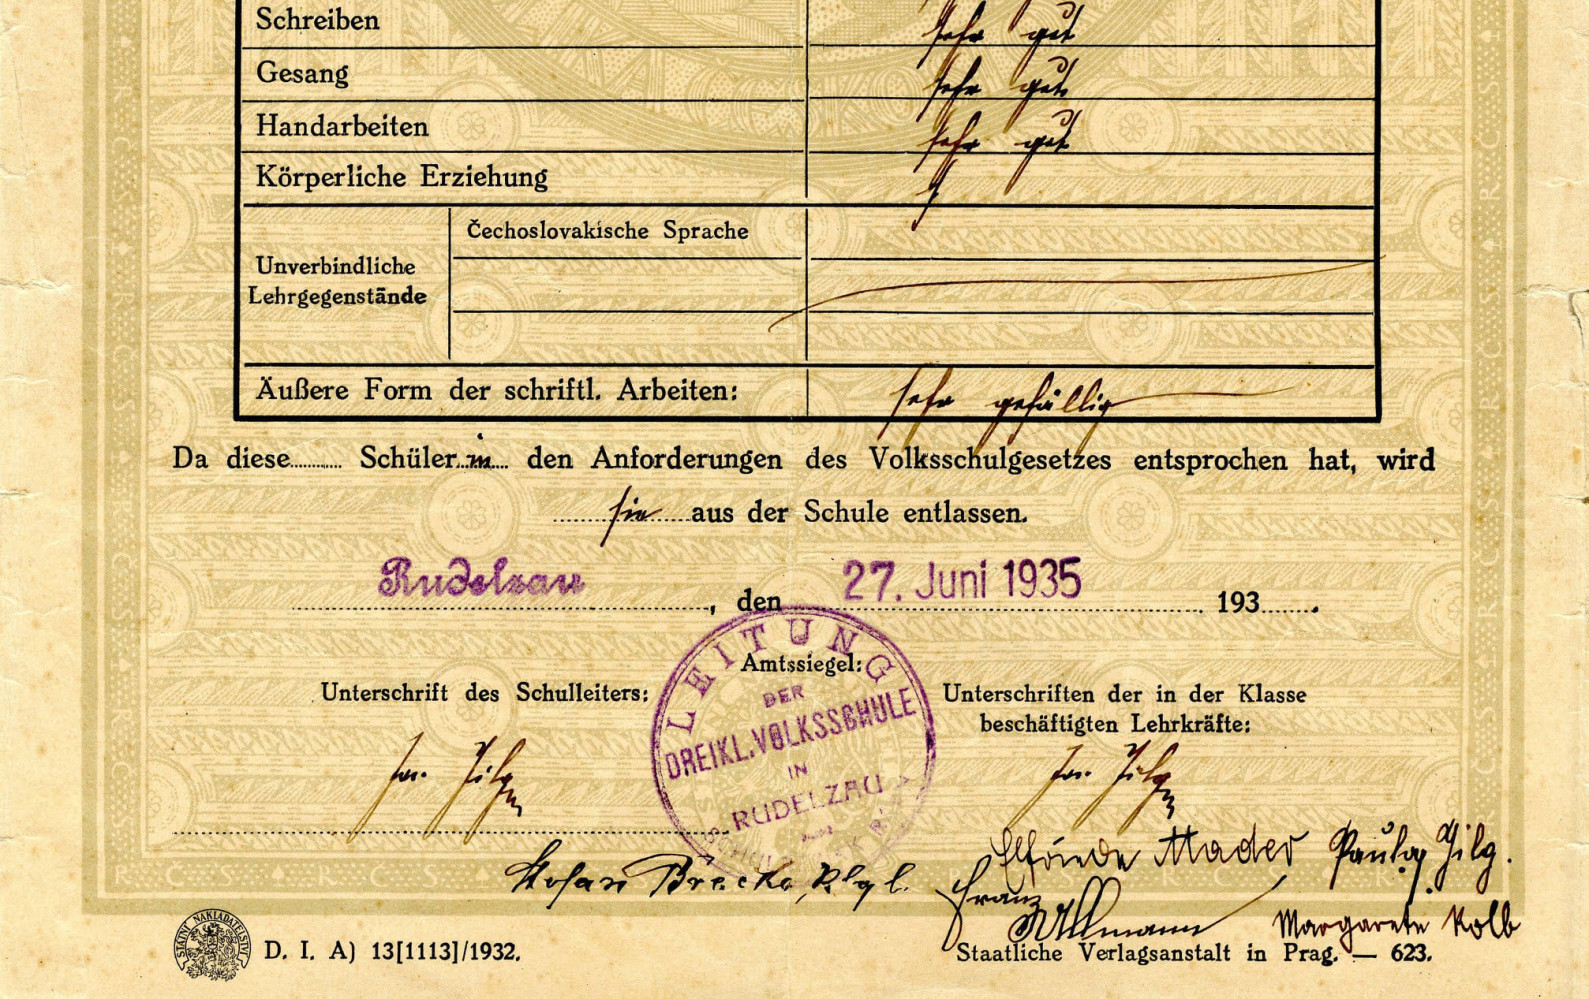 Schreiben sehr gut
Gesang sehr gut
Handarbeiten sehr gut
Körperliche Erziehung
Čechoslovakische Sprache
Unverbindliche
Lehrgegenstände
Äußere Form der schriftl. Arbeiten: sehr gefällig
Da diese Schülerin den Anforderungen des Volksschulgesetzes entsprochen hat, wird
sie aus der Schule entlassen.
Rudelzau, den 27. Juni 1935 193
LEITUNG
DER
DREIKL. VOLKSSCHULE
IN
RUDELZAU
Amtssiegel:
Unterschrift des Schulleiters:
Unterschriften der in der Klasse
beschäftigten Lehrkräfte:
Elfriede Mader Paula Jilg.
Franz
Ullmann Margarete Kolb
STÁTNÍ NAKLADATELSTVÍ
D. I. A) 13[1113]/1932.
Staatliche Verlagsanstalt in Prag. — 623.